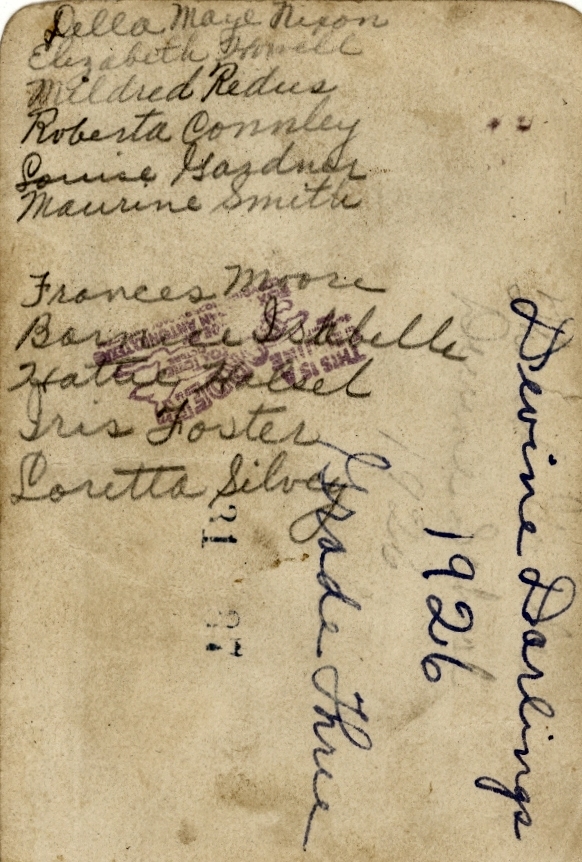 Della Maye Nixon
Elizabeth Howell
Mildred Redus
Roberta Connley
Louise Gardner
Maurine Smith
Frances Moore
Barnece Isabelle
Hattie Halsel
Iris Foster
Loretta Silvey
Devine Darlings
1926
Grade Three
THIS IS A